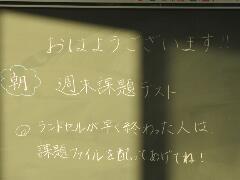 おはようございます!!
朝 週末課題テスト
ランドセルが早く終わった人は
課題ファイルを配ってあげてね!